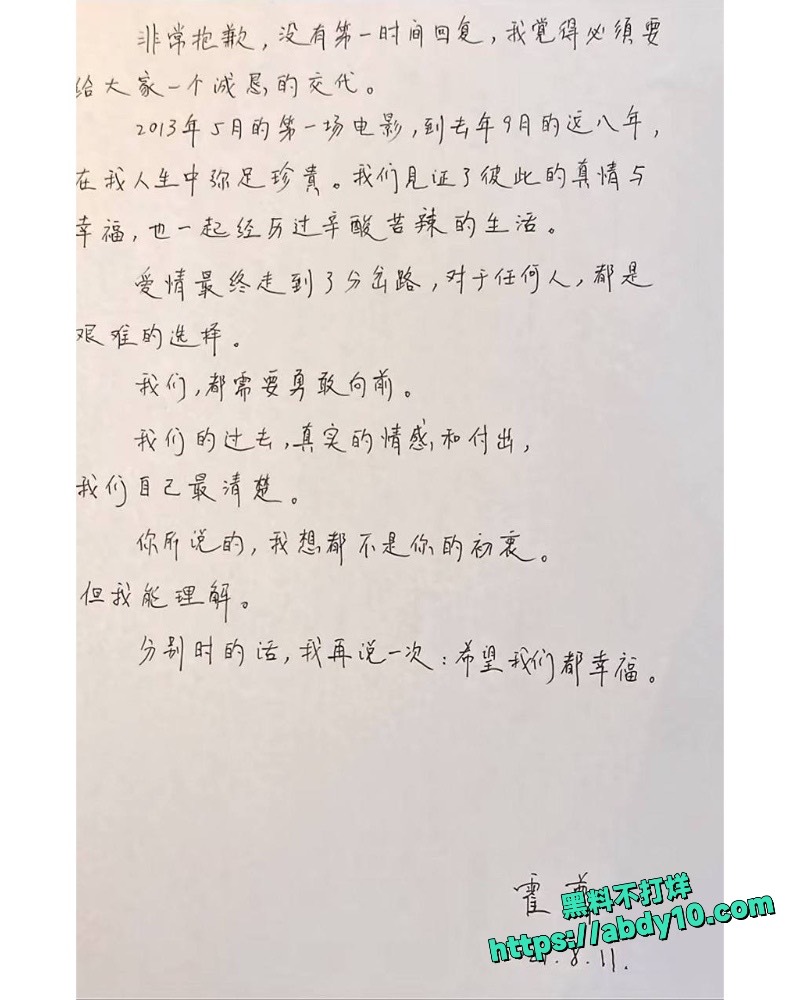 非常抱歉，没有第一时间回复，我觉得必须要
给大家一个诚恳的交代。
2013年5月的第一场电影，到去年9月的这八年，
在我人生中弥足珍貴。我们见证了彼此的真情与
幸福，也一起经历过辛酸苦辣的生活。
爱情最终走到了分岔路，对于任何人，都是
艰难的选择。
我们，都需要勇敢向前。
我们的过去，真实的情感和付出，
我们自己最清楚。
你所说的，我想都不是你的初衷。
但我能理解。
分别时的话，我再说一次：希望我们都幸福。
霍
黑料不打烊
https://abdy10.com
.8.11.